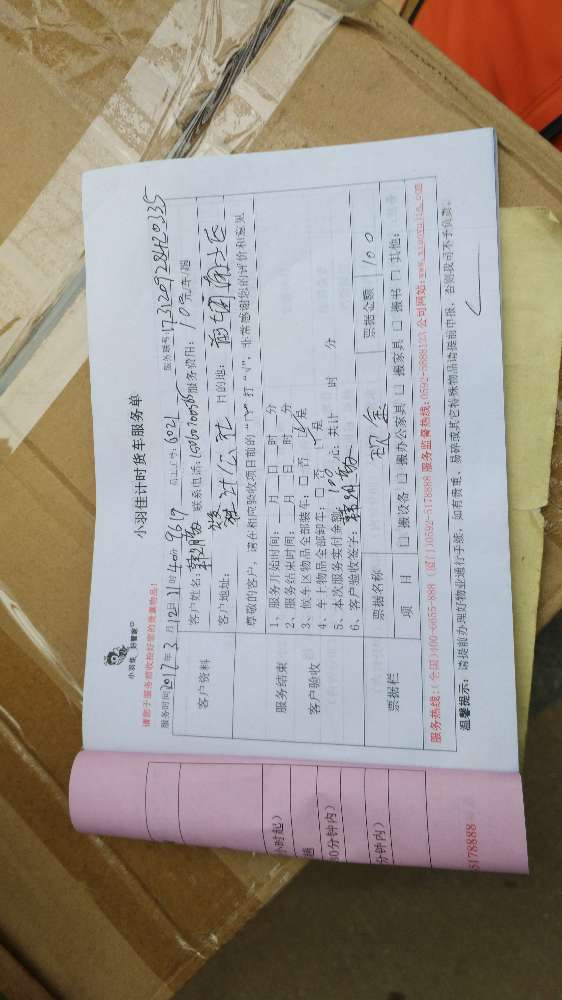 小羽佳 好管家
小羽佳计时货车服务单
请您于服务前收拾好您的贵重物品!
服务时间:2017年3月12日11时40分 9617 员工工号:6021 服务编号:173120928420335
客户资料
客户姓名: 联系电话: 服务费用:100元/车/趟
客户地址: 目的地:
尊敬的客户,请在相应验收项目前的“□”打“√”,非常感谢您的评价和意见
服务结束
客户验收
1、服务开始时间:____月____日____时____分
2、服务结束时间:____月____日____时____分
3、候车区物品全部装车:□否 □是
4、车上物品全部卸车:□否 □是
5、本次服务实付金额:100元;共计 时 分
6、客户验收签字:
票据栏
票据名称 现金 票据金额 100
项目 □搬设备 □搬办公家具 □搬家具 □搬书 □其他:
服务热线:(全国)400-6655-888 (厦门)0592-5178888 服务监督热线:0592-5888123 公司网站:www.xiaoyujia.com
温馨提示:请提前办理好物业通行手续,如有贵重、易碎或其它特殊物品请提前申报,否则我司不予负责。
小时起)
趟
30分钟内)
分钟内)
5178888